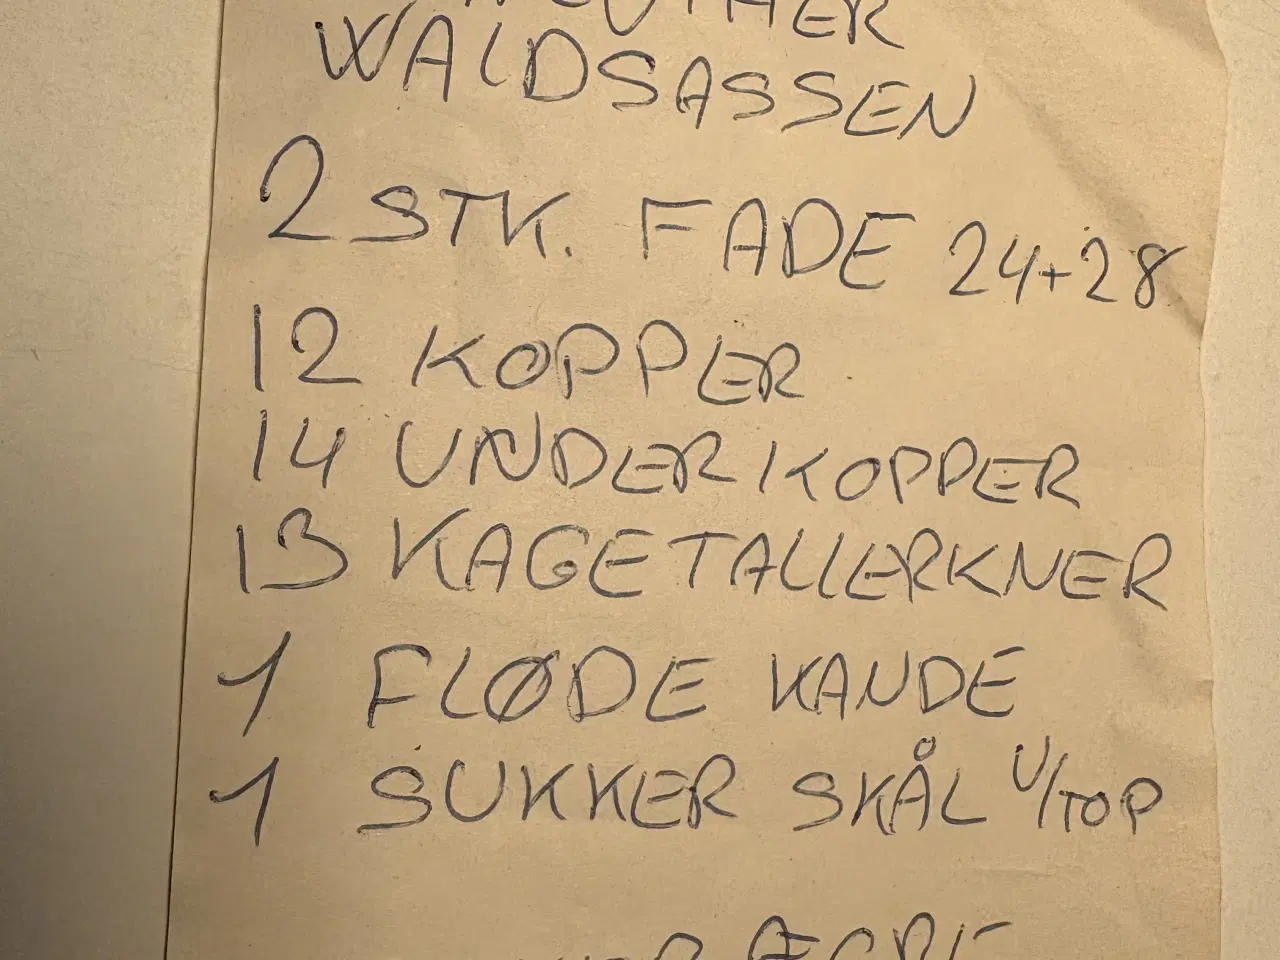 WALDSASSEN
2 STK. FADE 24+28
12 KOPPER
14 UNDERKOPPER
13 KAGETALLERKNER
1 FLØDE KANDE
1 SUKKER SKÅL U/TOP